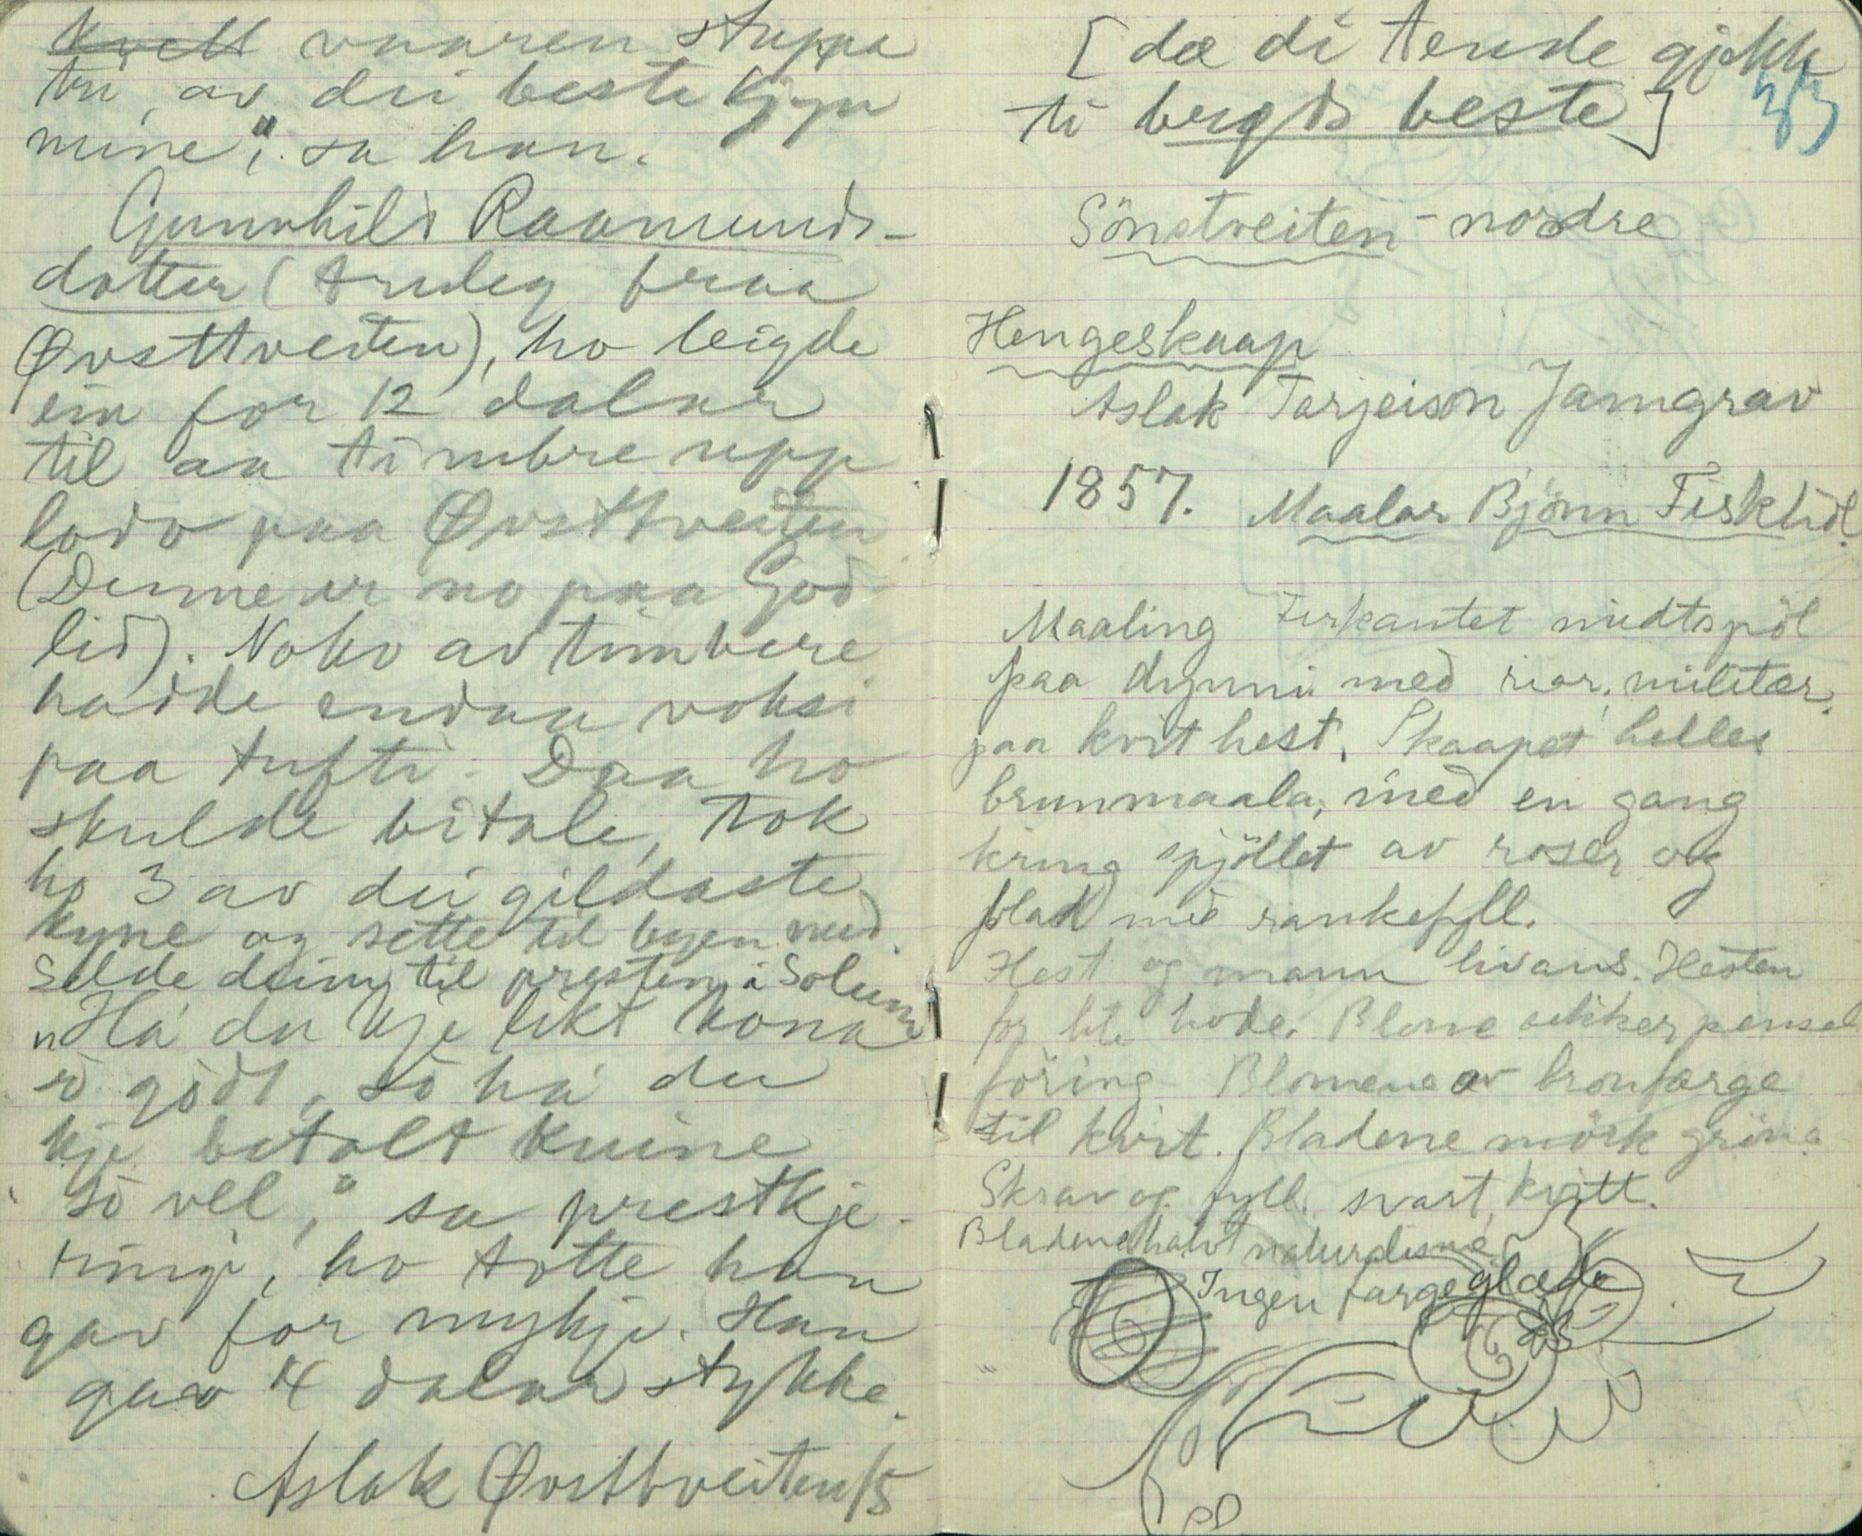 ~~kvelt~~ vaaren stuppa
tri av dei beste kjyn
mine", sa han.
Gunnhild Raamunds-
dotter (truleg fraa
Øvsttveiten), ho leigde
ein for 12 dalar
til aa timbre upp
lodo paa Øvsttveiten
(Denne er no paa God-
lid). Noko av timbere
hadde endaa voksi
paa tufti. Daa ho
skulde bitale, tok
ho 3 av dei gildaste
kyne og sette til byen med.
Selde deim til presten i Solum
"Há du kje likt kona
so godt, so há du
kje betalt kuine
so vel," sa prestkje-
ringi, ho totte han
gav for mykje. Han
gav 4 dalar stykke.
Aslak Øvsttveiten /5
[dæ di tende gjekk
ti bygds beste]
33
Sönstveiten - nordre
Hengeskaap
Aslak Tarjeison Jamgrav
1857. Maalar Bjönn Fisktjöl.
Maaling Firkantet midtspöl
paa dynni med rior, militær
paa kvit hest. Skaapet helles
brunmaala, med en gang
kring spjöllet av roser og
blad med rankefyll.
Hest og mann livaus. Hesten
for lite hode. Blome sikker pensel
föring. Blomene av bronfarge
til kvit. Bladene mörk gröna
Skrav og fyll svart, kvitt.
Bladene halvt naturalisme
Ingen fargeglæde